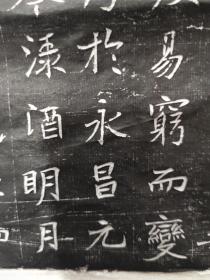 易窮而變
於永昌元
淥酒明月